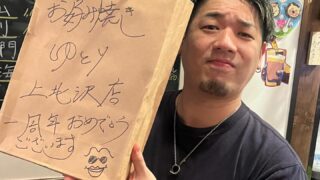 お好み焼き
ゆとり
上北沢店
一周年おめでとう
ございます